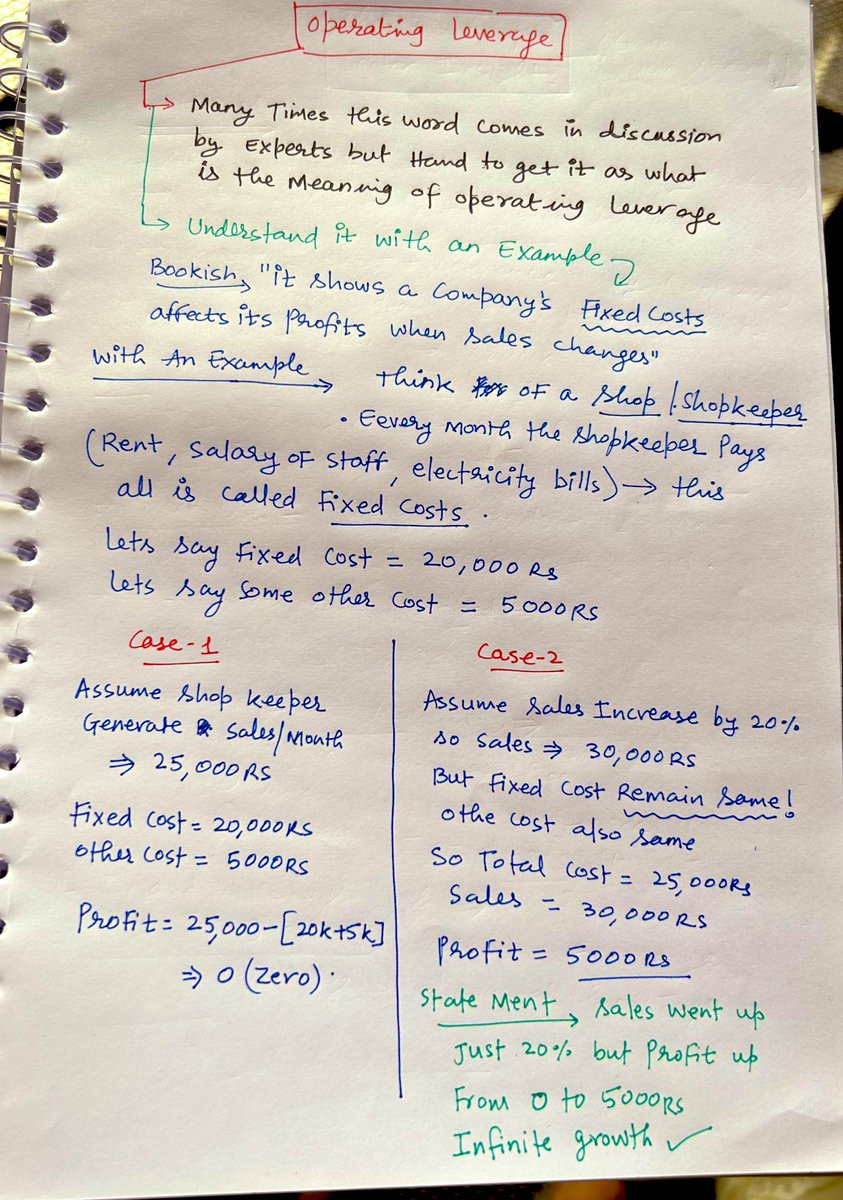 Operating Leverage
Many Times this word comes in discussion
by Experts but Hand to get it as what
is the Meaning of operating Leverage
Understand it with an Example
Bookish, "it shows a Company's Fixed Costs
affects its Profits when sales changes"
With An Example
think of a Shop / Shopkeeper
• Eevery Month the shopkeeper Pays
(Rent, Salary of Staff, electricity bills) → this
all is called Fixed Costs.
Lets say Fixed Cost = 20,000 RS
Lets say some other Cost = 5000 RS
Case-1
Assume shop keeper
Generate sales/Month
⇒ 25,000 RS
Fixed Cost = 20,000 RS
other Cost = 5000 RS
Profit = 25,000 - [20k+5k]
⇒ 0 (Zero).
Case-2
Assume sales Increase by 20%
so sales ⇒ 30,000 RS
But Fixed Cost Remain same!
othe cost also same
So Total Cost = 25,000 RS
Sales = 30,000 RS
Profit = 5000 RS
State Ment → sales went up
Just 20% but Profit up
From 0 to 5000 RS
Infinite growth ✓